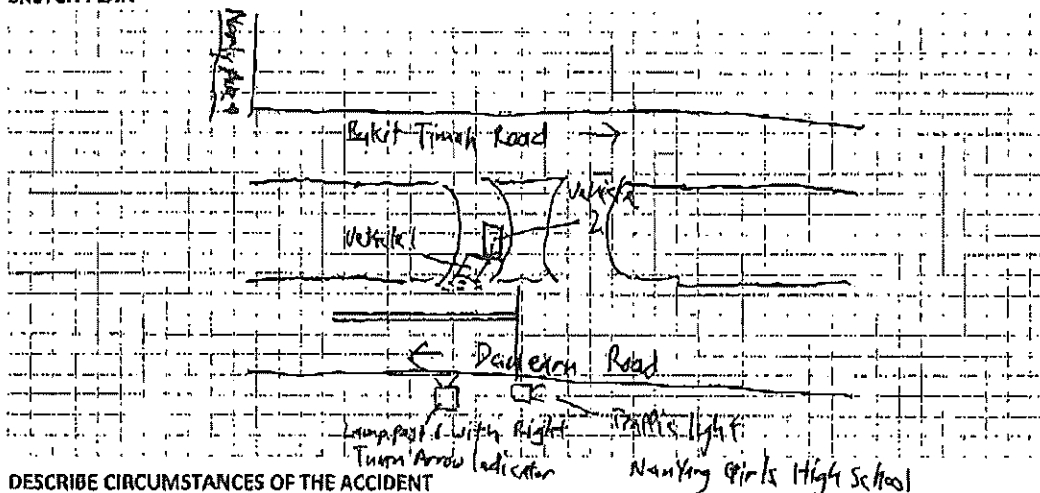 Bukit Timah Road →
Vehicle 2
Vehicle 1
← Dunearn Road
Lamp post 6 with Right
Turn Arrow Indicator
Traffic light
NanYing Girls High School
DESCRIBE CIRCUMSTANCES OF THE ACCIDENT